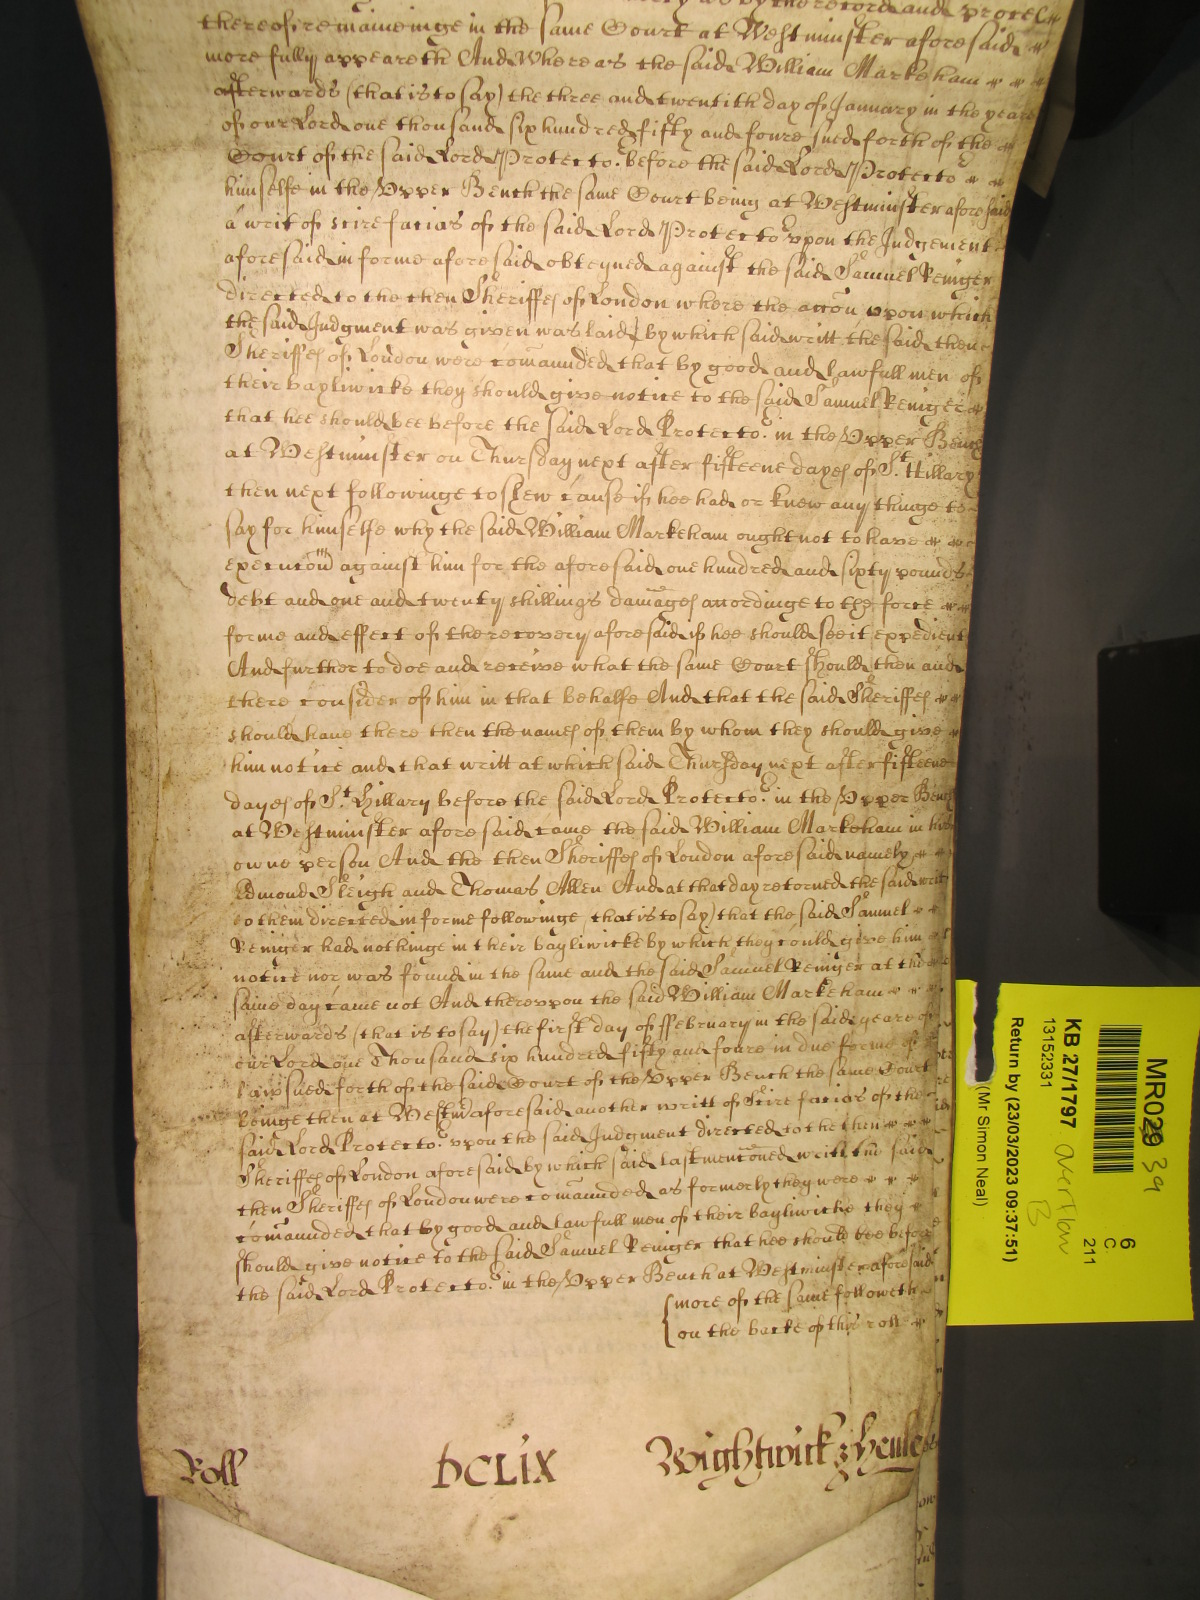 by the record and proces
thereof remaineinge in the same Court at Westminster aforesaid
more fully appeareth And Whereas the said William Markeham
afterwards (that is to say) the three and twentith day of January in the yeare
of our Lord one thousand six hundred fifty and foure sued forth of the
Court of the said Lord Protector before the said Lord Protector
himselfe in the Vpper Bench the same Court being at Westminster aforesaid
a writ of scire facias of the said Lord Protector vpon the Judgement
aforesaid in forme aforesaid obteyned against the said Samuel Reniger
directed to the then Sheriffes of London where the accon vpon which
the said Judgment was given was laid by which said writt the said then
Sheriffes of London were comaunded that by good and lawfull men of
their bayliwicke they should give notice to the said Samuel Reniger
that hee should bee before the said Lord Protector in the Vpper Bench
at Westminster on Thursday next after fifteene dayes of St. Hillary
then next followinge to shew cause if hee had or knew any thinge to
say for himselfe why the said William Markeham ought not to have
execucon against him for the aforesaid one hundred and sixty pounds
debt and one and twenty shillings damages accordinge to the force
forme and effect of the recovery aforesaid if hee should see it expedient
And further to doe and receive what the same Court should then and
there consider of him in that behalfe And that the said Sheriffes
should have there then the names of them by whom they should give
him notice and that writt at which said Thursday next after fifteene
dayes of St. Hillary before the said Lord Protector in the Vpper Bench
at Westminster aforesaid came the said William Markeham in his
owne person And the then Sheriffes of London aforesaid namely
Edmond Sleigh and Thomas Allen And at that day retorned the said writt
to them directed in forme followinge (that is to say) that the said Samuel
Reniger had nothinge in their bayliwicke by which they could give him
notice nor was found in the same and the said Samuel Reniger at the
same day came not And therevpon the said William Markeham
afterwards (that is to say) the first day of ffebruary in the said yeare of
our Lord one Thousand six hundred fifty and foure in due forme of
law sued forth of the said Court of the Vpper Bench the same Court
beinge then at Westmr aforesaid another writt of Scire facias of the
said Lord Protector vpon the said Judgment directed to the then
Sheriffes of London aforesaid by which said last mencioned writt the said
then Sheriffes of London were comaunded as formerly they were
comaunded that by good and lawfull men of their bayliwicke they
should give notice to the said Samuel Reniger that hee should bee before
the said Lord Protector in the Vpper Bench at Westminster aforesaid
{more of the same followeth
on the backe of this roll
Roll DCLIX Wightwick &
15
MR029 39
6
C
211
KB 27/1797 overflow
B
13152331
Return by (23/03/2023 09:37:51)
(Mr Simon Neal)